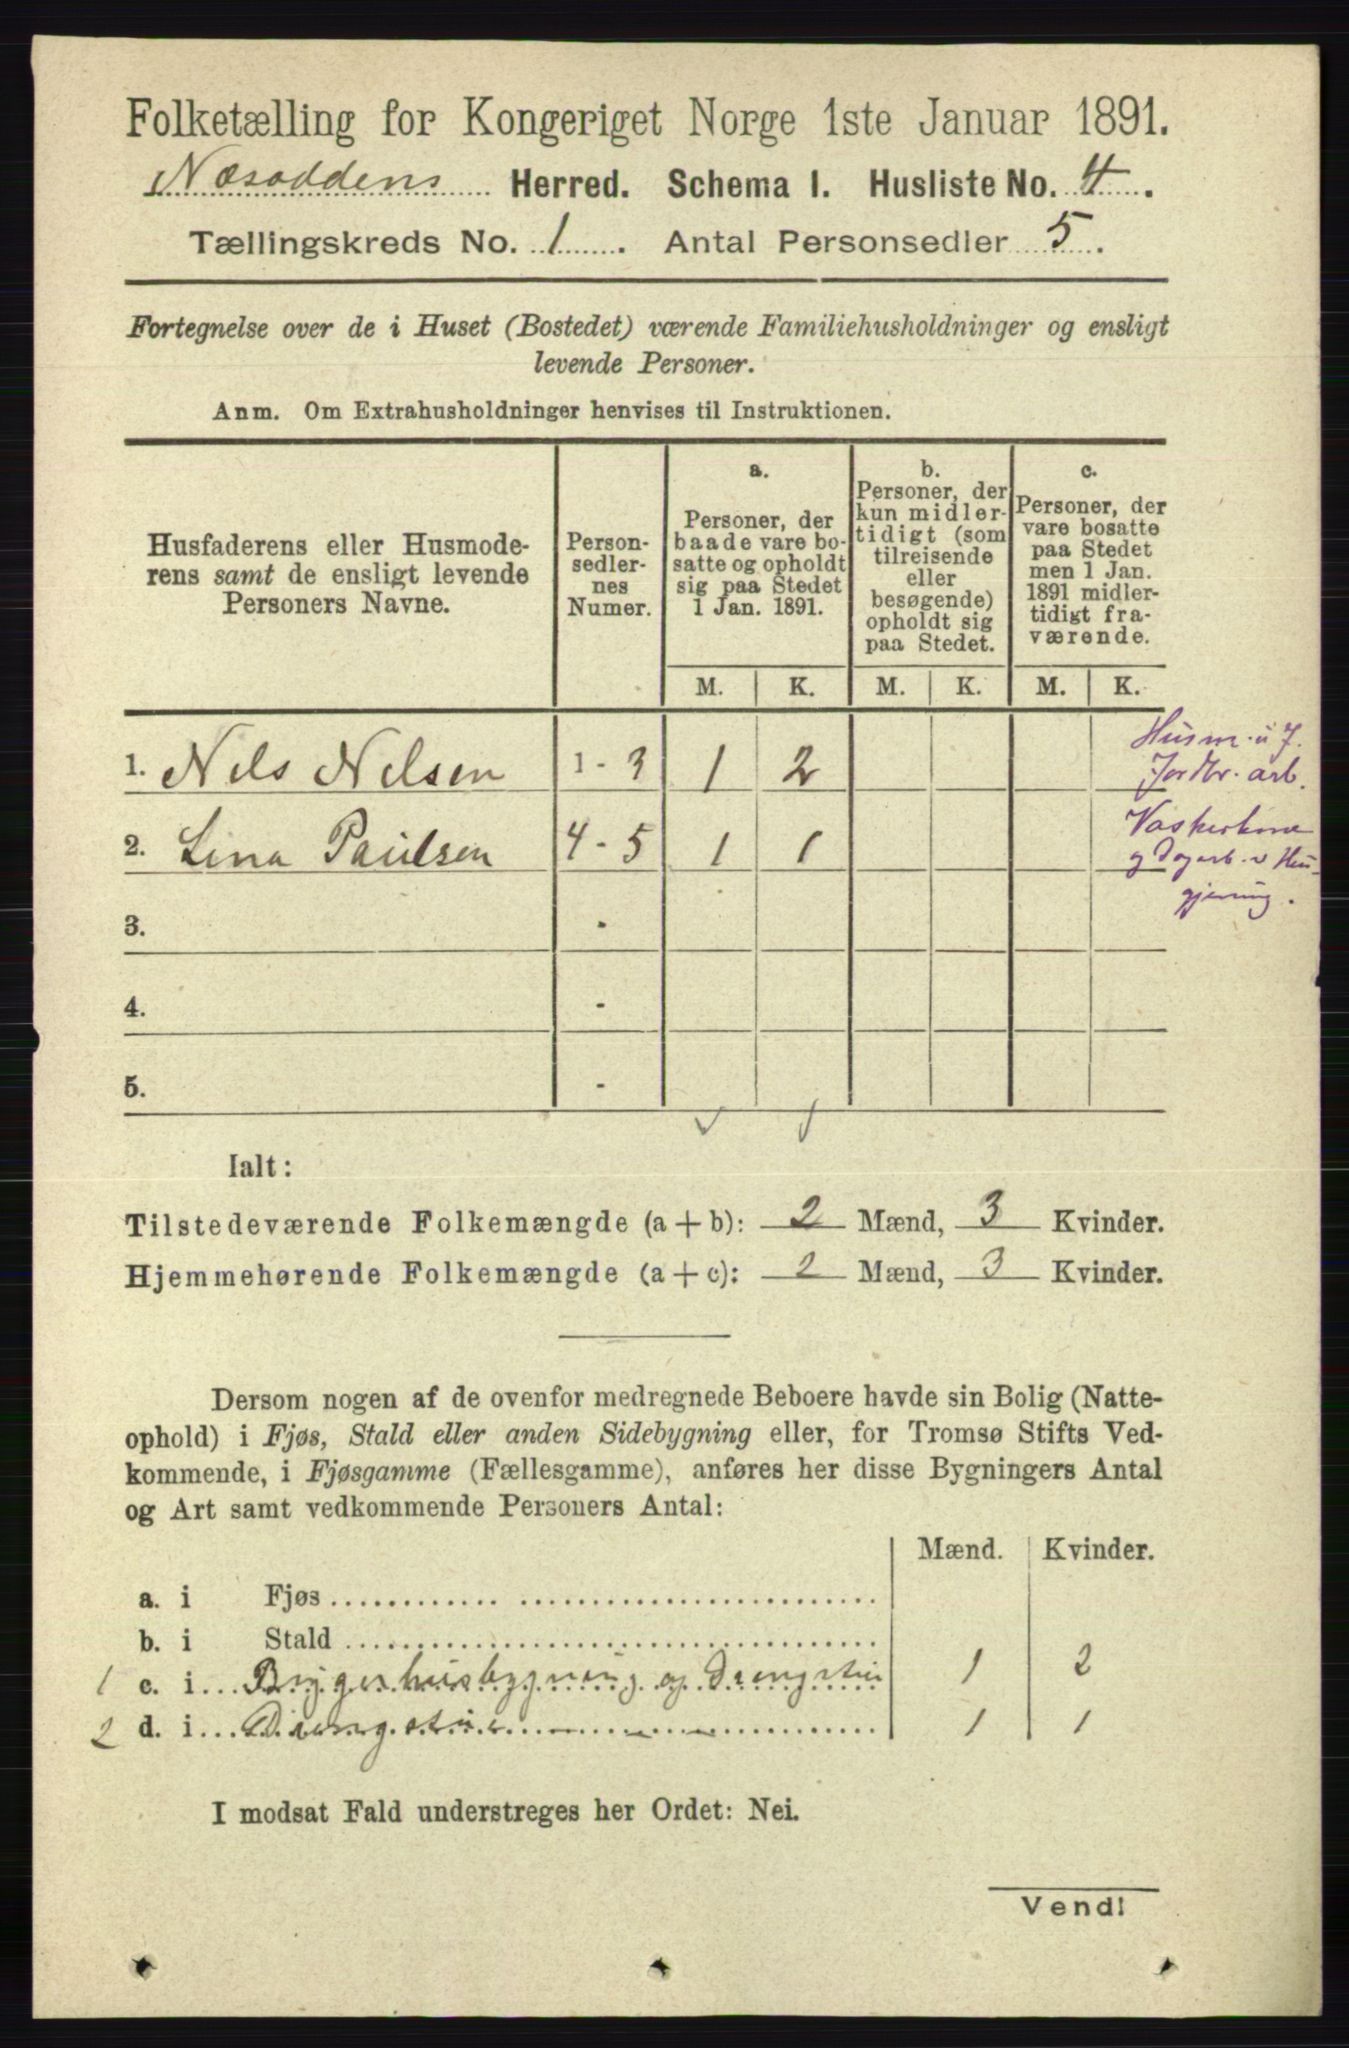 Folketælling for Kongeriget Norge 1ste Januar 1891.
Næsoddens Herred. Schema I. Husliste No. 4.
Tællingskreds No. 1. Antal Personsedler 5.
Fortegnelse over de i Huset (Bostedet) værende Familiehusholdninger og ensligt
levende Personer.
Anm. Om Extrahusholdninger henvises til Instruktionen.
Husfaderens eller Husmode-
rens samt de ensligt levende
Personers Navne.
Person-
sedler-
nes
Numer.
a.
Personer, der
baade vare bo-
satte og opholdt
sig paa Stedet
1 Jan. 1891.
b.
Personer, der
kun midler-
tidigt (som
tilreisende
eller
besøgende)
opholdt sig
paa Stedet.
c.
Personer, der
vare bosatte
paa Stedet
men 1 Jan.
1891 midler-
tidigt fra-
værende.
M. K. M. K. M. K.
1. Nels Nelsen 1 - 3 1 2
Husm. u J.
Jordbr. arb.
2. Lina Paulsen 4 - 5 1 1
Vaskerkone
g Dagarb. v Hus-
gjerning.
3. -
4. -
5. -
Ialt:
Tilstedeværende Folkemængde (a + b): 2 Mænd, 3 Kvinder.
Hjemmehørende Folkemængde (a + c): 2 Mænd, 3 Kvinder.
Dersom nogen af de ovenfor medregnede Beboere havde sin Bolig (Natte-
ophold) i Fjøs, Stald eller anden Sidebygning eller, for Tromsø Stifts Ved-
kommende, i Fjøsgamme (Fællesgamme), anføres her disse Bygningers Antal
og Art samt vedkommende Personers Antal:
Mænd. Kvinder.
a. i Fjøs
b. i Stald
1 c. i Bryggerhusbygning og Drengstue 1 2
2 d. i Drengstue 1 1
I modsat Fald understreges her Ordet: Nei.
Vend!